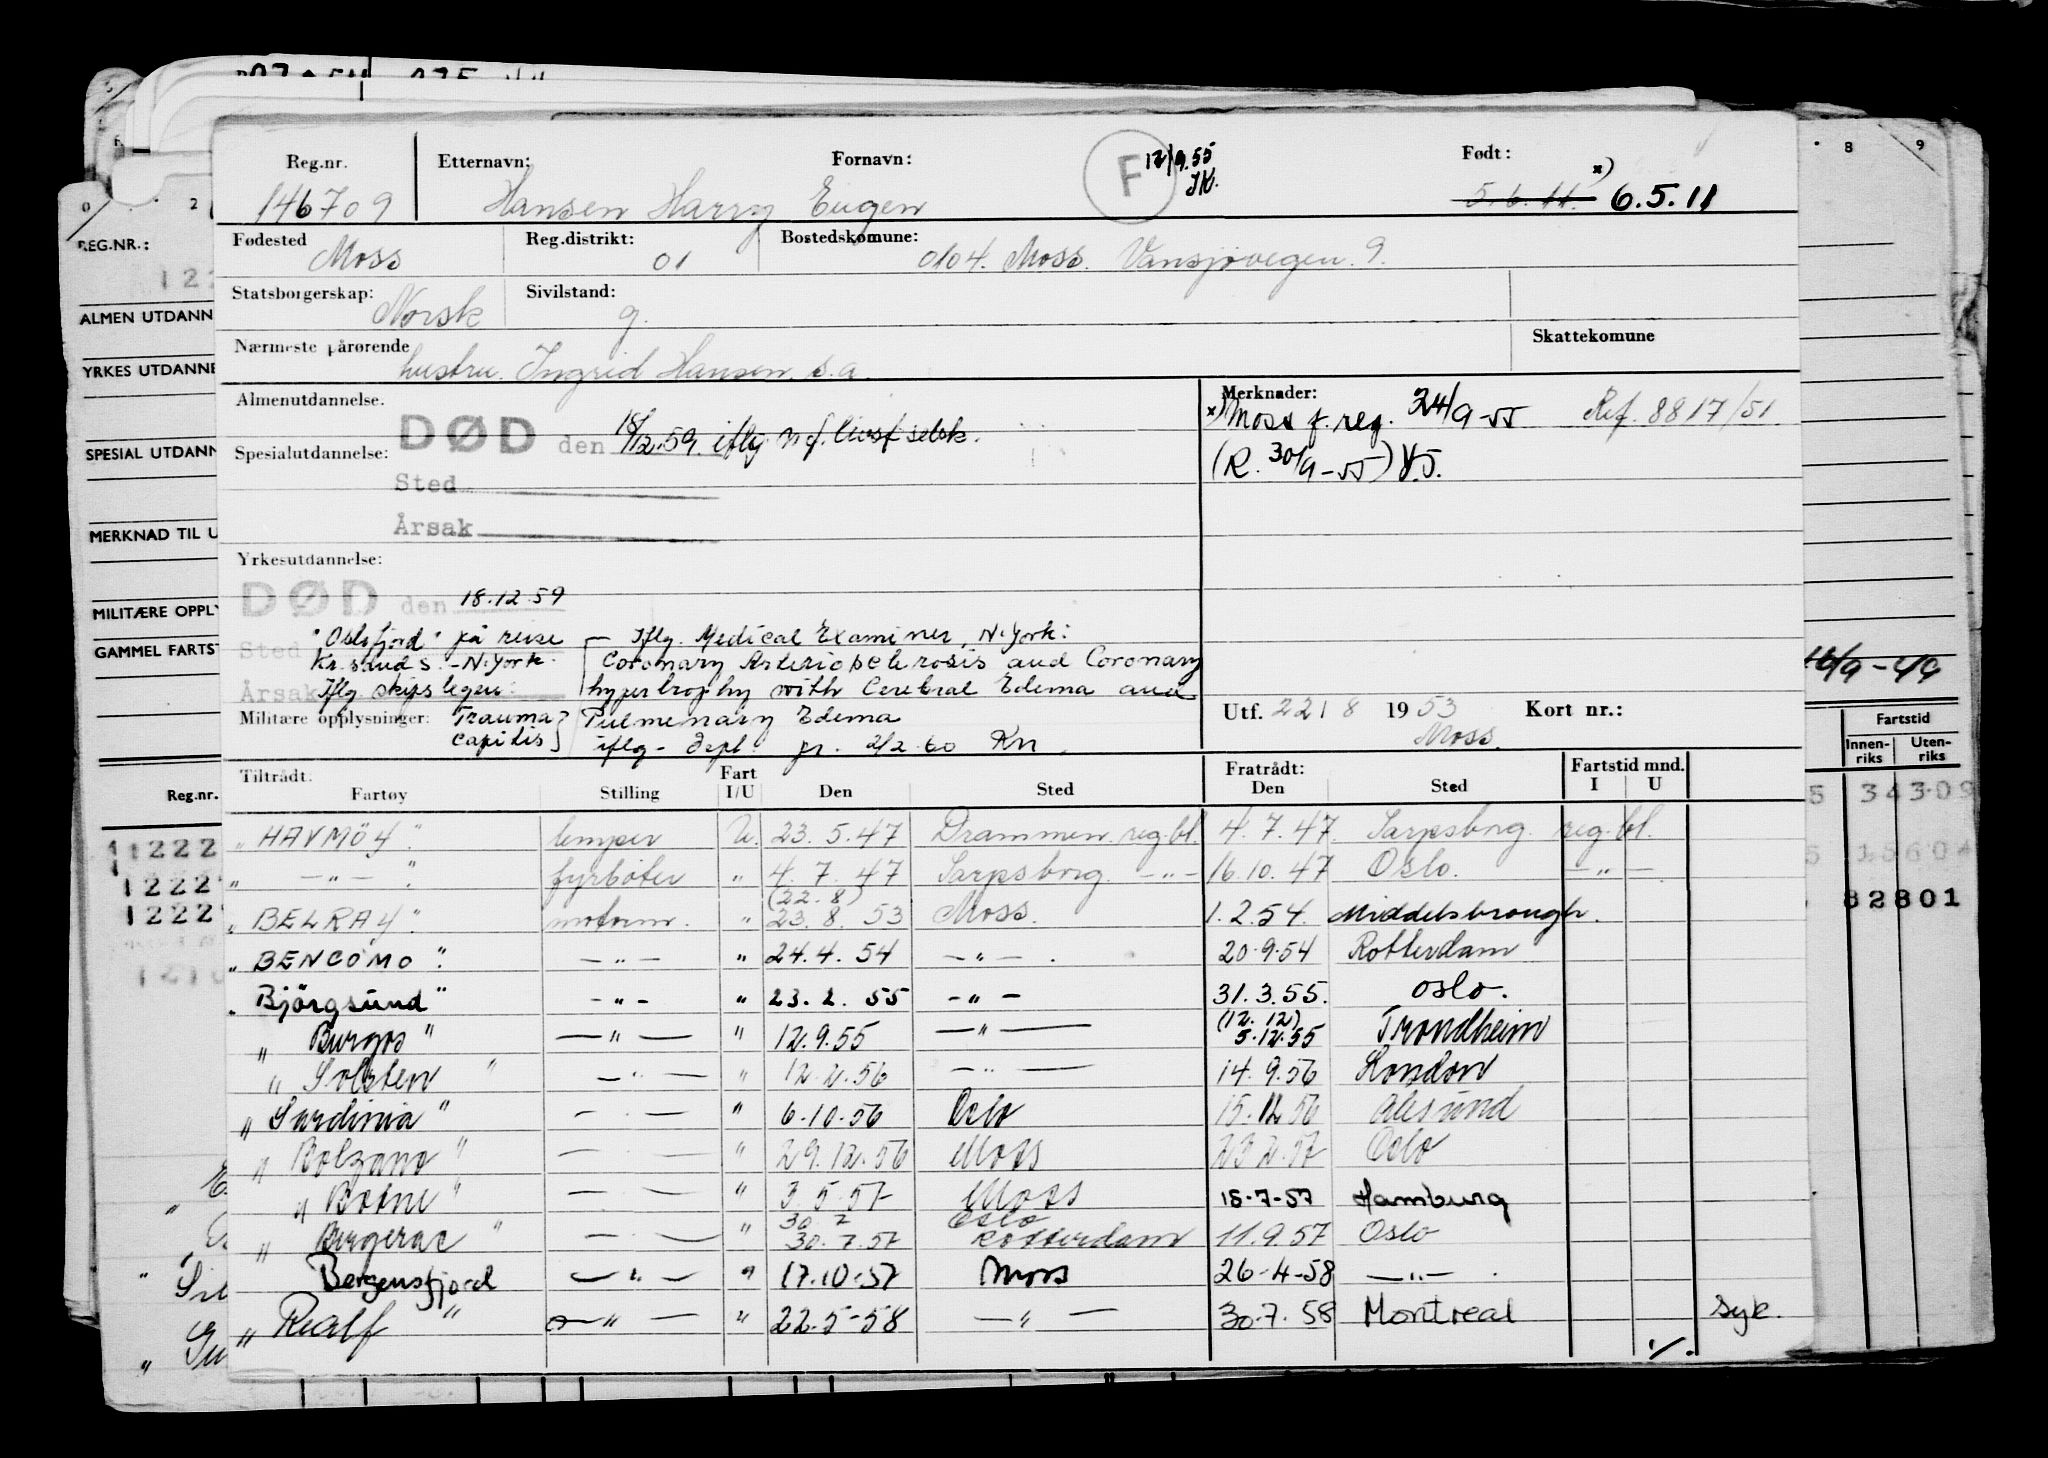 Reg.nr. Etternavn: Fornavn: F 12/9.55 Født: x)
146709 Hansen Harry Eugen JK. 5.6.11. 6.5.11
Fødested Reg.distrikt: Bostedskomune:
Moss 01 0104. Moss. Vansjøvegen. 9.
Statsborgerskap: Sivilstand:
Norsk g.
Nærmeste pårørende Skattekomune
hustru. Ingrid Hansen. s.a.
Almenutdannelse. Merknader:
x) Moss f. reg. 24/9-55 Ref. 8817/51.
DØD den 18/12.59. iflg. n.f. livsf selsk.
Spesialutdannelse: (R. 30/9-55)
Sted
Årsak
Yrkesutdannelse:
DØD den 18.12.59
Sted "Oslofjord" på reise Iflg. Medical Examiner, N.York:
Kr.sand S. - N.York. Coronary Arteriosclerosis and Coronary
Årsak Iflg. skipslegen: hypertrophy with Cerebral Edema and
Militære opplysninger: Trauma Pulmonary Edema Utf. 22/8 1953 Kort nr.:
capitis iflg. depl. pr. 2/2.60 KN. Moss.
Tiltrådt: Fart Fratrådt: Fartstid mnd.
Fartøy Stilling I/U Den Sted Den Sted I U
"HAVMÖY." lemper U. 23.5.47 Drammen reg.bl. 4.7.47. Sarpsborg. reg.bl.
" —"— " fyrbøter " 4.7.47 Sarpsborg. —"— 16.10.47 Oslo. —"—
(22.8)
"BELRAY". motorm. " 23.8.53 Moss. 1.2.54. Middelsbrough.
"BENCOMO". —"— " 24.4.54 —"—. 20.9.54 Rotterdam
"Björgsund" —"— " 23.2.55 —"— 31.3.55. Oslo.
(12.12)
"Burgos" —"— " 12.9.55 —"— 5.12.55 Trondheim
"Solsten" —"— " 12.2.56 —"— 14.9.56 London
"Sardinia" —"— " 6.10.56 Oslo 15.12.56 Ålesund
"Bolzano" —"— " 29.12.56 Moss 23.2.57 Oslo
"Botne" —"— " 3.5.57 Moss 18.7-57 Hamburg
30 7 Oslo
"Bergerac" —"— " 30.7.57 Rotterdam 11.9.57 Oslo
Bergensfjord —"— " 17.10.57 Moss 26-4-58 —"—.
"Realf" —"— " 22.5-58 —"— 30.7.58 Montreal Syk.
./.
0 2 8 9
REG.NR.:
122
ALMEN UTDANN
YRKES UTDANNE
SPESIAL UTDANN
MERKNAD TIL U
MILITÆRE OPPLY
GAMMEL FARTS
Reg.nr.
Fartstid
Innen-riks Uten-riks
34309
15604
82801